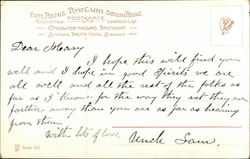 CARTE POSTALE. POSTCARD. CARTOLINA POSTALE.
POSTKARTE.
Dear Mary
I hope this will find you
well and I hope in good spirits we are
all well and all the rest of the folks as
far as I know for the way they are they are
farther away than you are as far as hearing
from them
With lots of love
Uncle Sam.